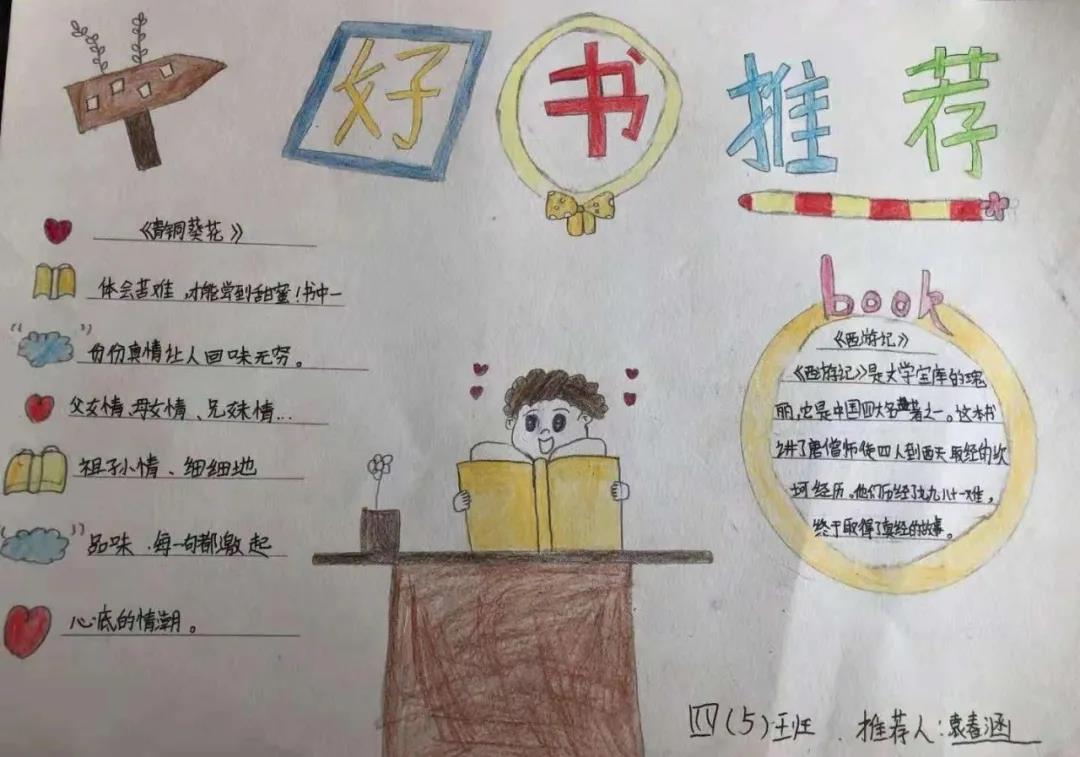 好书推荐
《青铜葵花》
体会苦难,才能尝到甜蜜!书中一
份份真情让人回味无穷。
父女情、母女情、兄妹情...
祖孙情、细细地
品味,每一句都激起
心底的情潮。
book
《西游记》
《西游记》是文学宝库的瑰
丽,也是中国四大名著之一。这本书
讲了唐僧师徒四人到西天取经的坎
坷经历。他们历经了九九八十一难,
终于取得了真经的故事。
四(5)班 推荐人:袁春涵